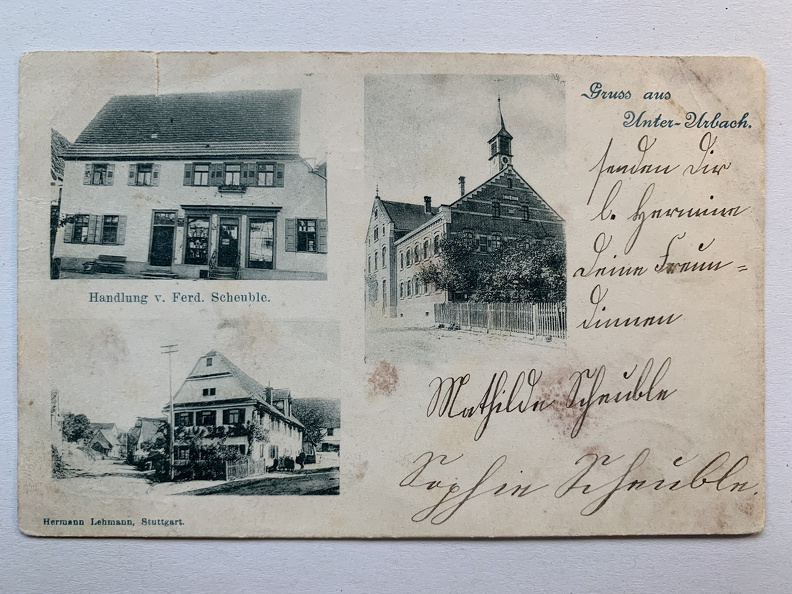 Gruss aus
Unter-Urbach.
senden Dir
l. Hermine
Deine Freun=
dinnen
Mathilde Scheuble
Sophie Scheuble.
Handlung v. Ferd. Scheuble.
Hermann Lehmann, Stuttgart.